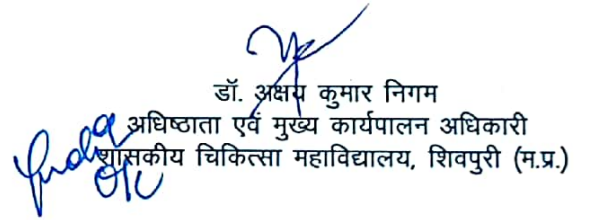 डॉ. अक्षय कुमार निगम
अधिष्ठाता एवं मुख्य कार्यपालन अधिकारी
शासकीय चिकित्सा महाविद्यालय, शिवपुरी (म.प्र.)